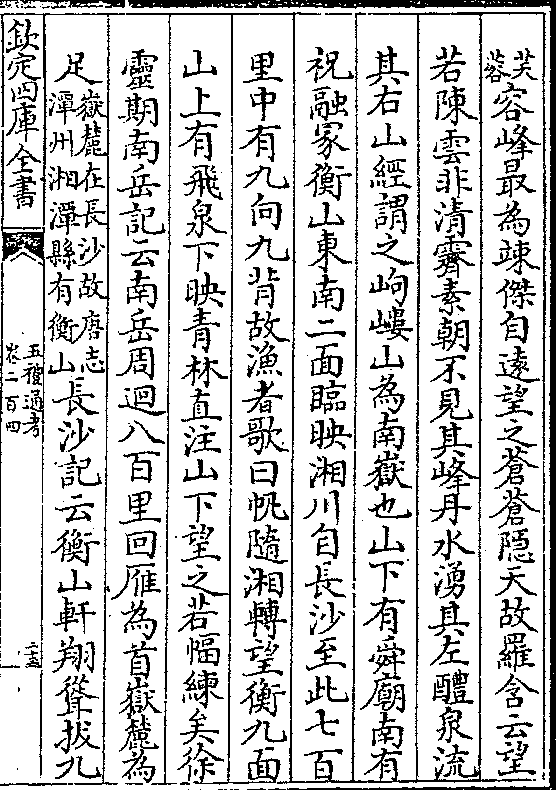 芙蓉容峰最為竦傑自遠望之蒼蒼隱天故羅含云望
若陳雲非清霽素朝不見其峰丹水湧其左醴泉流
其右山經謂之岣嶁山為南嶽也山下有舜廟南有
祝融冢衡山東南二面臨映湘川自長沙至此七百
里中有九向九背故漁者歌曰帆隨湘轉望衡九面
山上有飛泉下映青林直注山下望之若幅練矣徐
靈期南岳記云南岳周迴八百里回雁為首嶽麓為
足嶽麓在長沙故唐志潭州湘潭縣有衡山長沙記云衡山軒翔聳拔九
欽定四庫全書
五禮通考
卷二百四
二十五